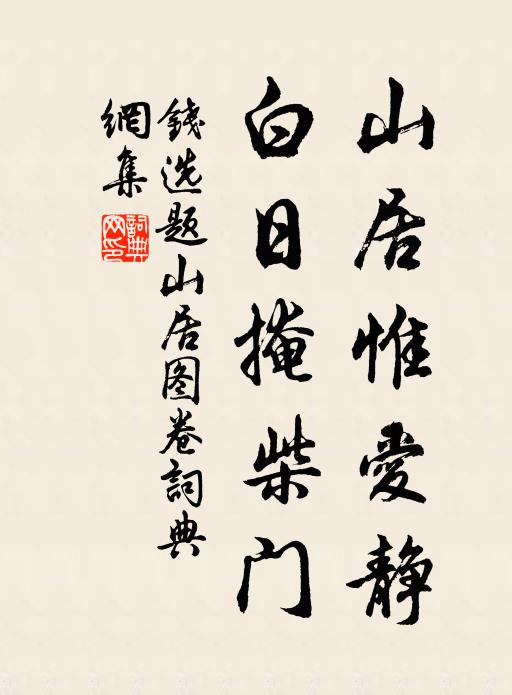 山居惟愛静
白日掩柴门
銭选题山居图卷詞典
網集
詞典
网印